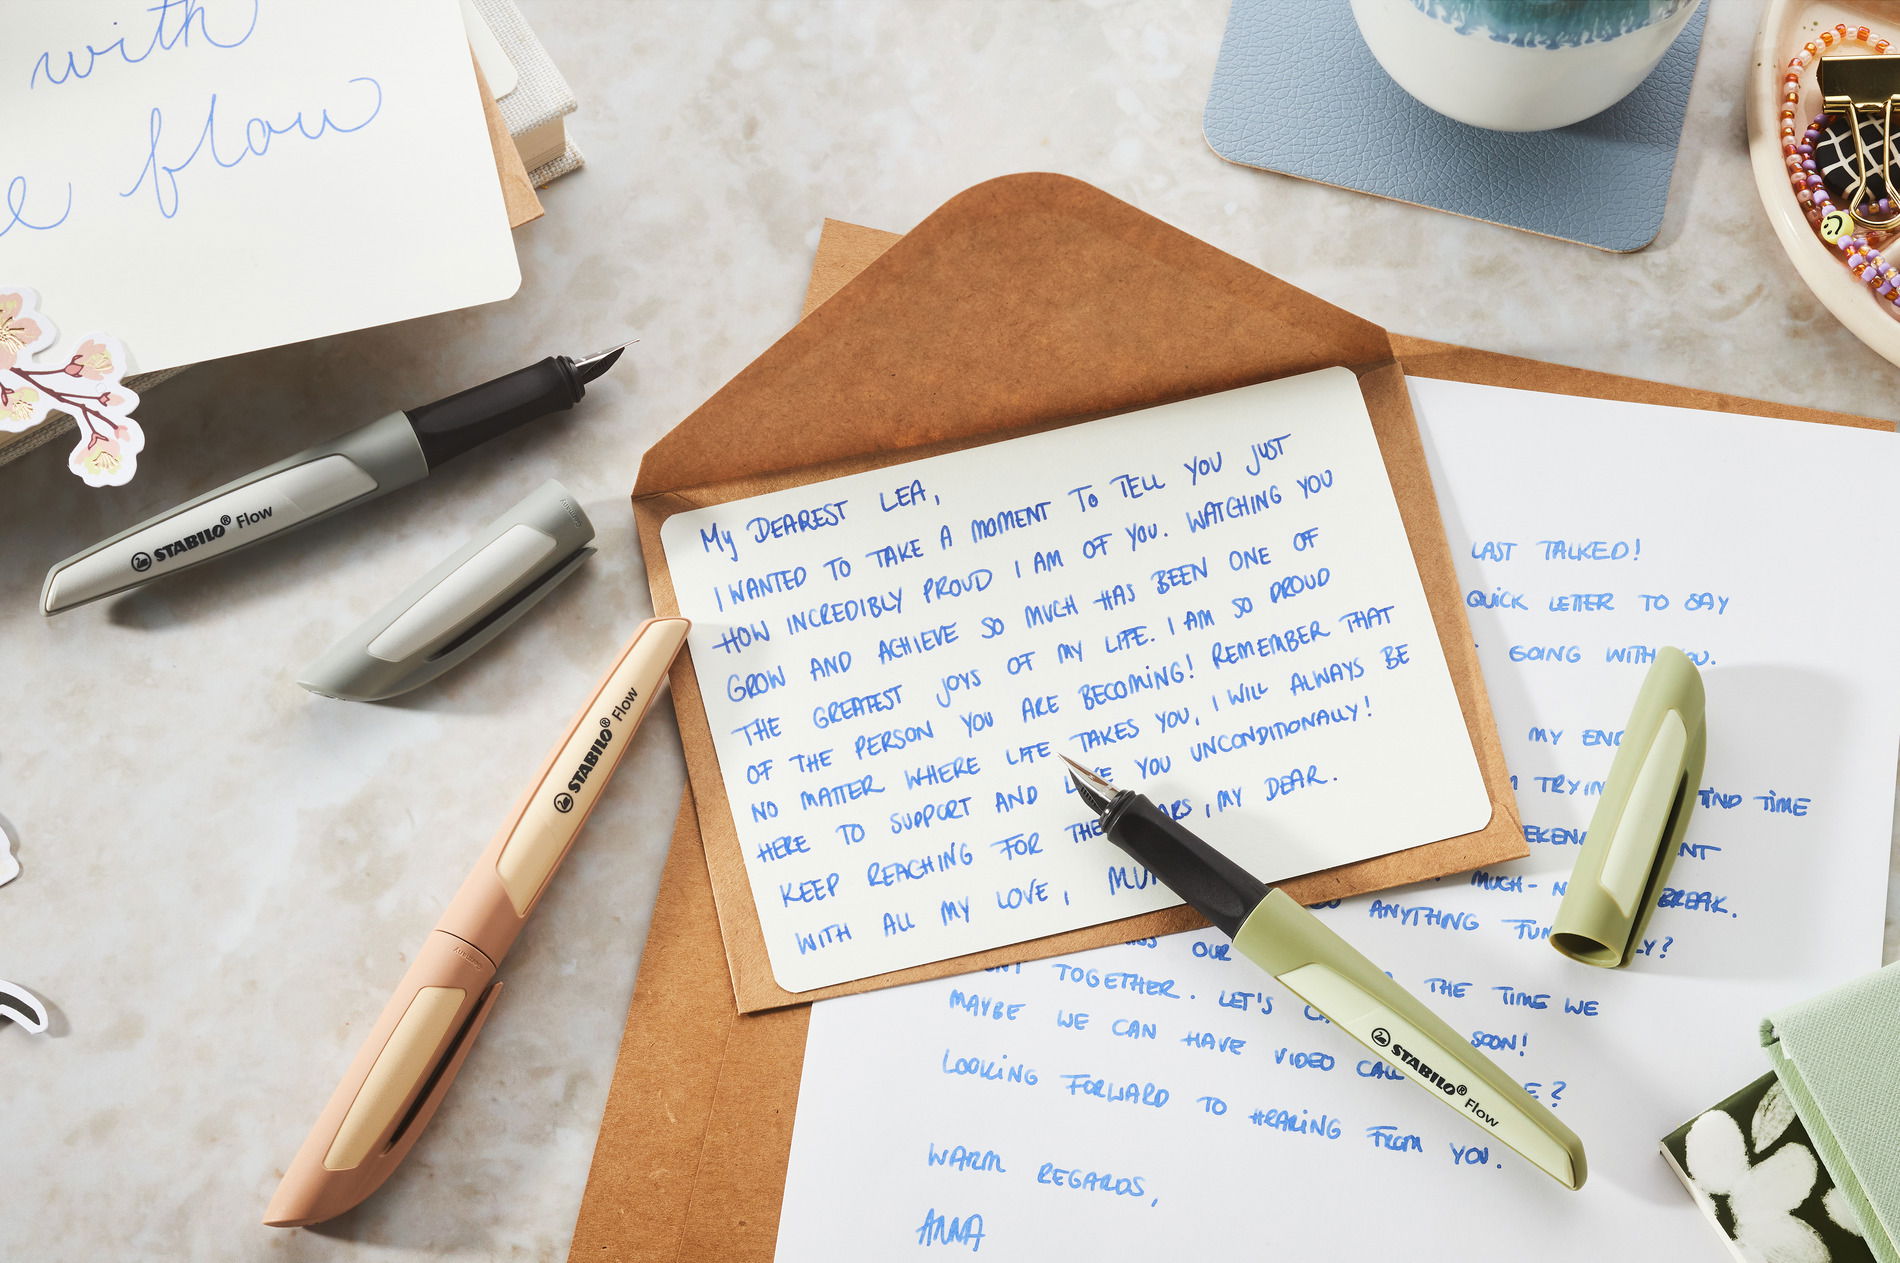 with
flow
STABILO® Flow
Germany
STABILO® Flow
Germany
MY DEAREST LEA,
I WANTED TO TAKE A MOMENT TO TELL YOU JUST
HOW INCREDIBLY PROUD I AM OF YOU. WATCHING YOU
GROW AND ACHIEVE SO MUCH HAS BEEN ONE OF
THE GREATEST JOYS OF MY LIFE. I AM SO PROUD
OF THE PERSON YOU ARE BECOMING! REMEMBER THAT
NO MATTER WHERE LIFE TAKES YOU, I WILL ALWAYS BE
HERE TO SUPPORT AND YOU UNCONDITIONALLY!
KEEP REACHING FOR THE , MY DEAR.
WITH ALL MY LOVE,
LAST TALKED!
QUICK LETTER TO SAY
GOING WITH YOU.
MY
TIME
MUCH- BREAK.
ANYTHING
OUR
TOGETHER. LET'S THE TIME WE
MAYBE WE CAN HAVE VIDEO CALL SOON!
LOOKING FORWARD TO HEARING FROM YOU.
WARM REGARDS,
ANNA
STABILO® Flow